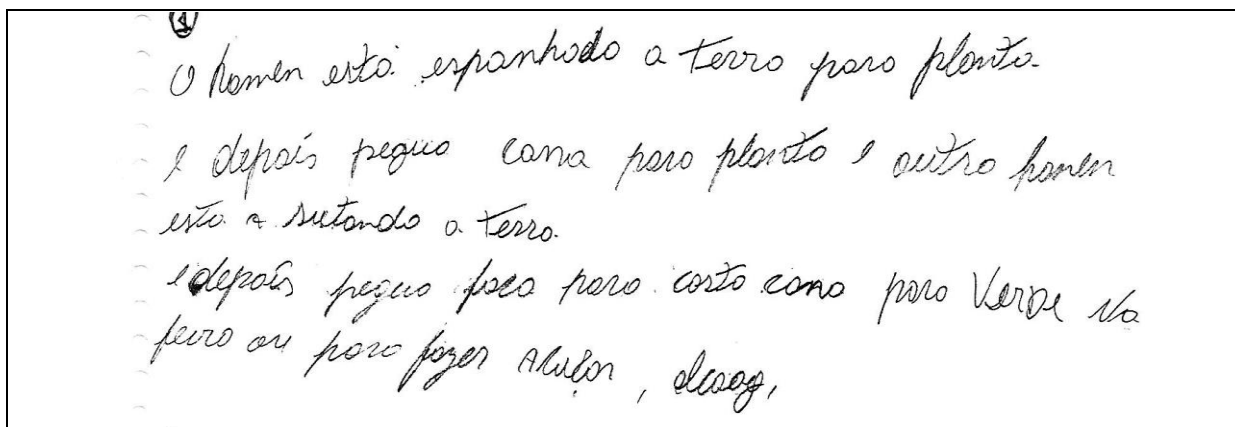 ①
O homen está espanhado a terra para planta.
e depois pegua cana para planta e outro homen
esta a sutando a terra.
e depois pegua faca para corta cana para Verde Na
feira ou para fazer Aluçar, alcoog,